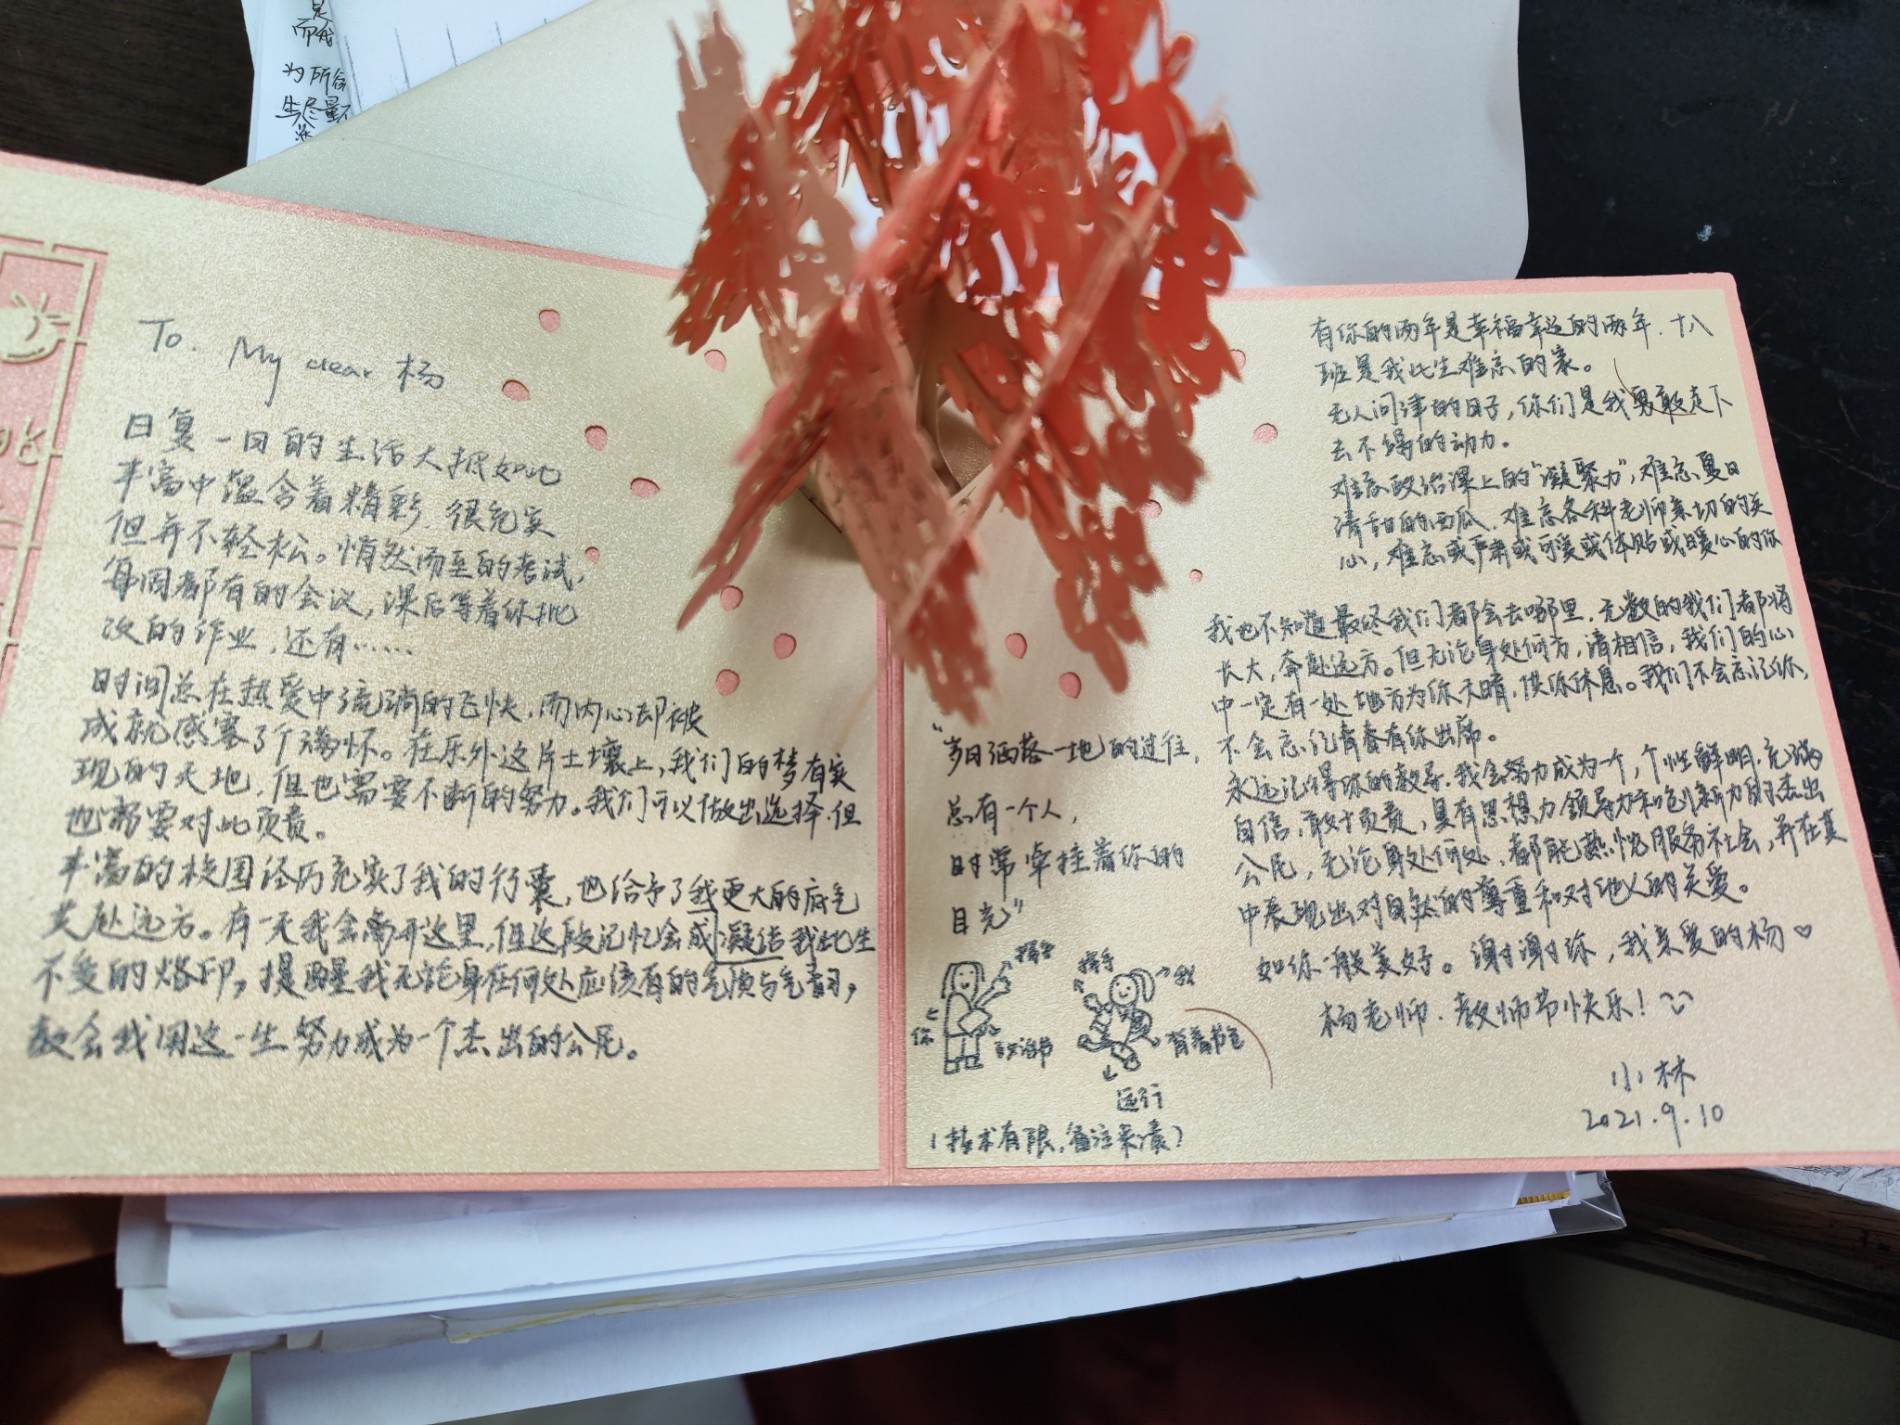 是
而我
为所
生尽量不
To. My dear 杨
日复一日的生活大抵如此
丰富中蕴含着精彩,很充实
但并不轻松。悄然而至的考试,
每周都有的会议,课后等着你批
改的作业,还有……
时间总在热爱中流淌的飞快,而内心却被
成就感塞了个满怀。在乐外这片土壤上,我们的梦有实
现的天地,但也需要不断的努力。我们可以做出选择,但
也需要对此负责。
丰富的校园经历充实了我的行囊,也给予了我更大的底气
奔赴远方。有一天我会离开这里,但这段记忆会成凝结我此生
不变的烙印,提醒我无论身在何处应该有的气质与气韵,
教会我用这一生努力成为一个杰出的公民。
“岁月洒落一地的过往,
总有一个人,
时常牵挂着你的
目光”
招手
你
政治书
招手
我
背着书包
远行
(技术有限,备注来凑)
有你的两年是幸福幸运的两年,十八
班是我此生难忘的家。
无人问津的日子,你们是我勇敢走下
去不竭的动力。
难忘政治课上的“凝聚力”,难忘夏日
清甜的西瓜,难忘各科老师亲切的关
心,难忘或严肃或可爱或体贴或暖心的你
我也不知道最终我们都会去哪里,无数的我们都将
长大,奔赴远方。但无论身处何方,请相信,我们的心
中一定有一处地方为你天晴,供你休息。我们不会忘记你,
不会忘记青春有你出席。
永远记得你的教导,我会努力成为一个,个性鲜明,充满
自信,敢于负责,具有思想力领导力和创新力的杰出
公民,无论身处何处,都能热忱服务社会,并在其
中表现出对自然的尊重和对他人的关爱。
如你一般美好。谢谢你,我亲爱的杨♡
杨老师,教师节快乐!
小林
2021.9.10